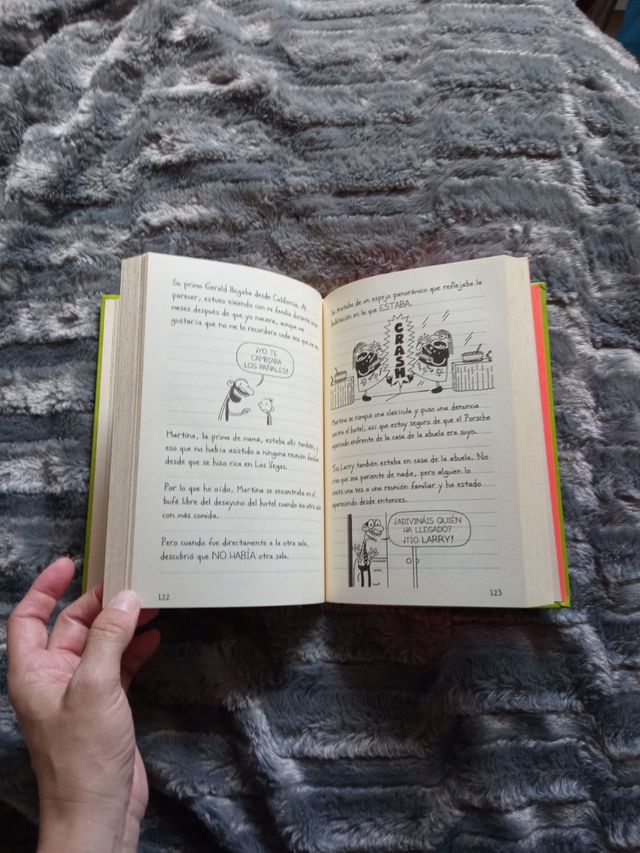 Su primo Gerald llegaba desde California. Al
parecer, estuvo viviendo con mi familia durante unos
meses después de que yo naciera, aunque me
gustaría que no me lo recordara cada vez que me ve.
¡YO TE
CAMBIABA
LOS PAÑALES!
Martina, la prima de mamá, estaba allí también, y
eso que no había asistido a ninguna reunión familiar
desde que se hizo rica en Las Vegas.
Por lo que he oído, Martina se encontraba en el
bufé libre del desayuno del hotel cuando vio otra sala
con más comida.
Pero cuando fue directamente a la otra sala,
descubrió que NO HABÍA otra sala.
122
Se trataba de un espejo panorámico que reflejaba la
habitación en la que ESTABA.
CRASH
Martina se rompió una clavícula y puso una denuncia
contra el hotel, así que estoy seguro de que el Porsche
aparcado enfrente de la casa de la abuela era suyo.
Tío Larry también estaba en casa de la abuela. No
creo que sea pariente de nadie, pero alguien lo
invitó una vez a una reunión familiar y ha estado
apareciendo desde entonces.
¿ADIVINÁIS QUIÉN
HA LLEGADO?
¡TÍO LARRY!
123